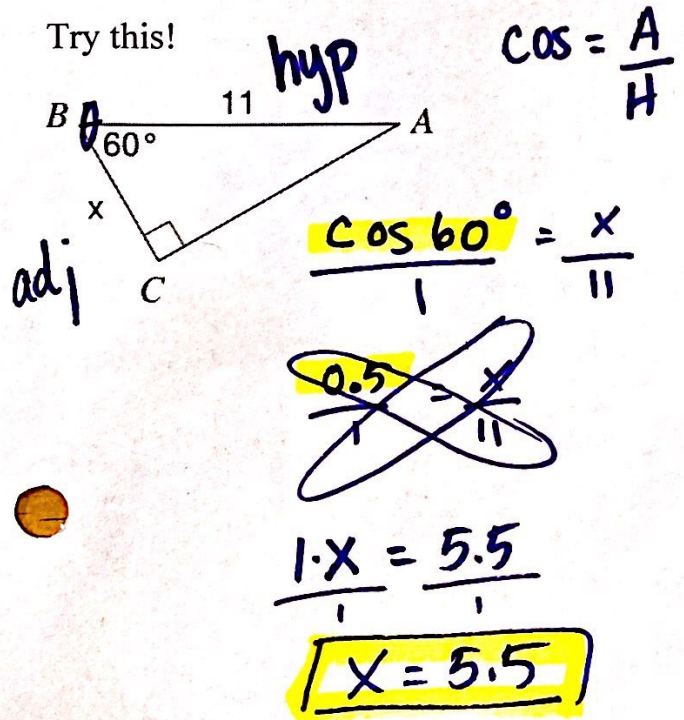 Try this!
hyp
cos = A/H
B 11 A
60°
x
adj
C
cos 60°/1 = x/11
0.5/1 = x/11
1·x/1 = 5.5/1
x = 5.5